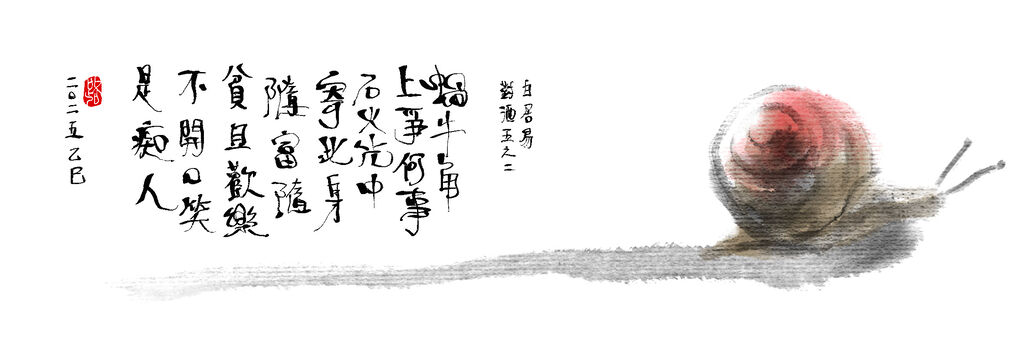 白居易
對酒五之二
蝸牛角
上爭何事
石火光中
寄此身
隨富隨
貧且歡樂
不開口笑
是痴人
二〇二五乙巳